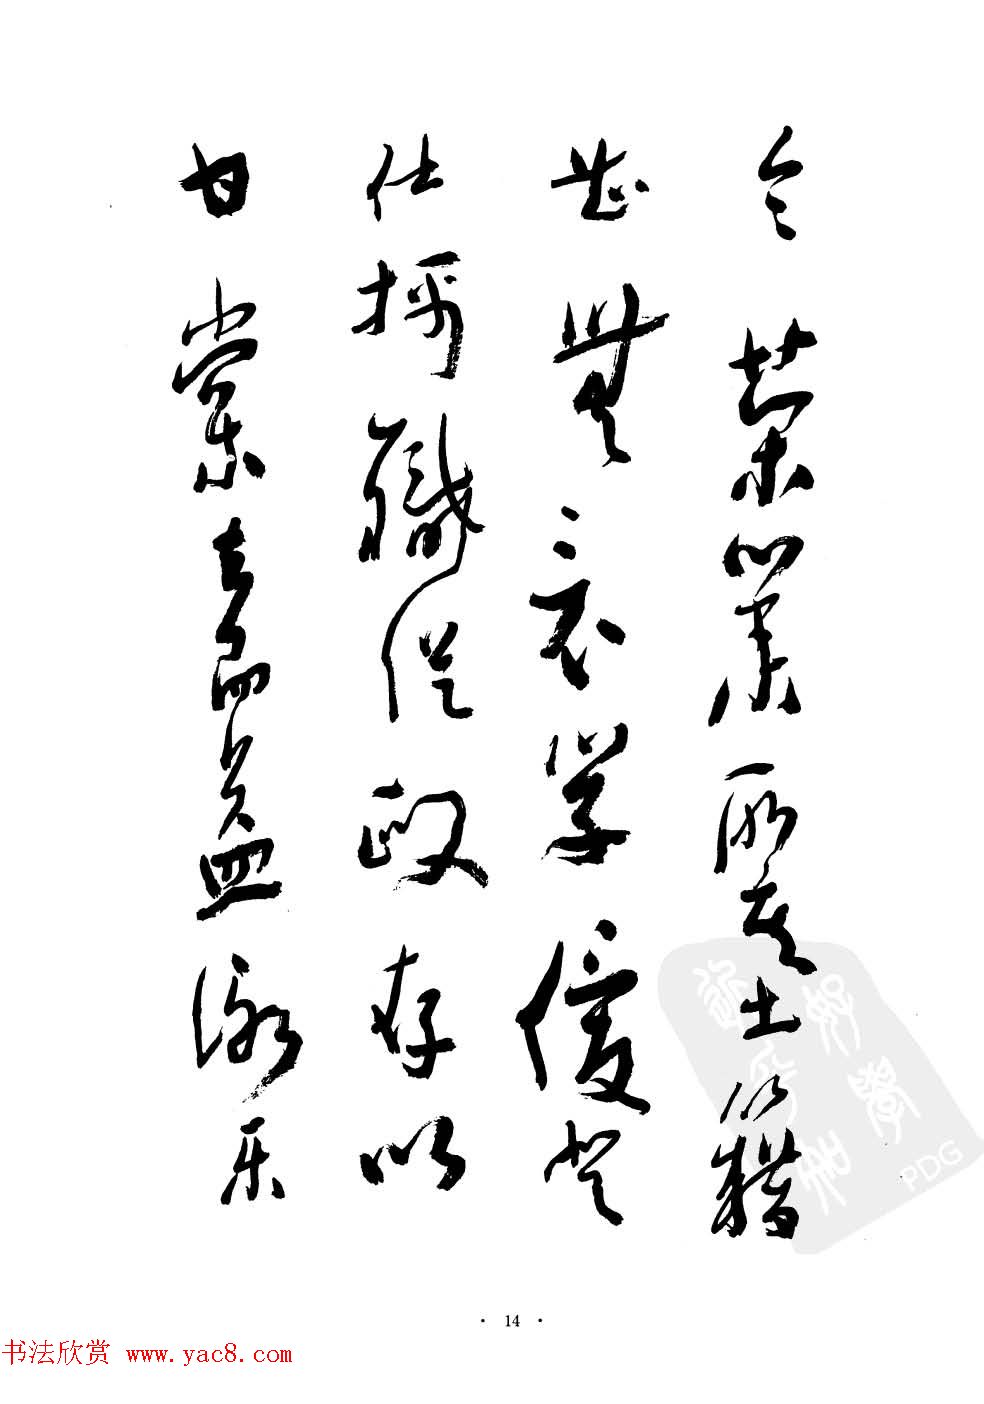 令榮業所基籍
甚無竟學優登
仕攝職從政存以
甘棠去而益詠樂
PDG
· 14 ·
书法欣赏 www.yac8.com